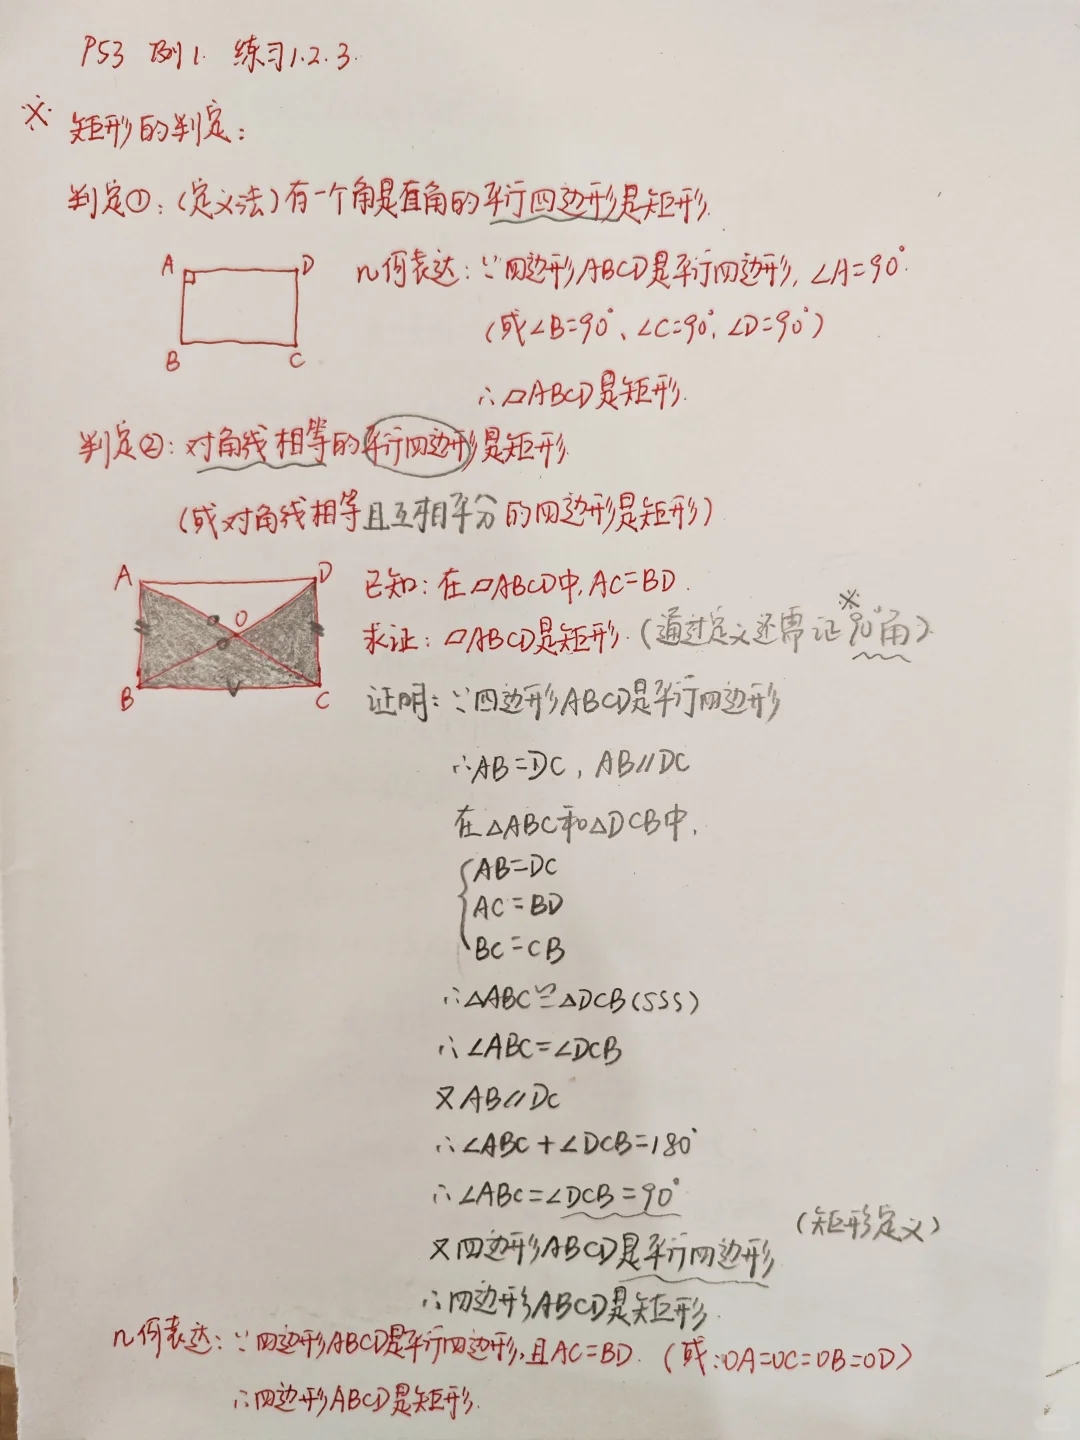 P53 例1. 练习1.2.3.
※ 矩形的判定:
判定①:(定义法)有一个角是直角的平行四边形是矩形.
A D
B C
几何表达:∵四边形ABCD是平行四边形,∠A=90°.
(或∠B=90°、∠C=90°、∠D=90°)
∴▱ABCD是矩形.
判定②:对角线相等的平行四边形是矩形.
(或对角线相等且互相平分的四边形是矩形)
A D
O
B C
已知:在▱ABCD中,AC=BD.
求证:▱ABCD是矩形.(通过定义还需证90°角).
※
证明:∵四边形ABCD是平行四边形
∴AB=DC,AB//DC
在△ABC和△DCB中,
{AB=DC
AC=BD
BC=CB
∴△ABC≌△DCB(SSS)
∴∠ABC=∠DCB
又AB//DC
∴∠ABC+∠DCB=180°
∴∠ABC=∠DCB=90°
又四边形ABCD是平行四边形
(矩形定义)
∴四边形ABCD是矩形.
几何表达:∵四边形ABCD是平行四边形,且AC=BD.(或:OA=OC=OB=OD)
∴四边形ABCD是矩形.